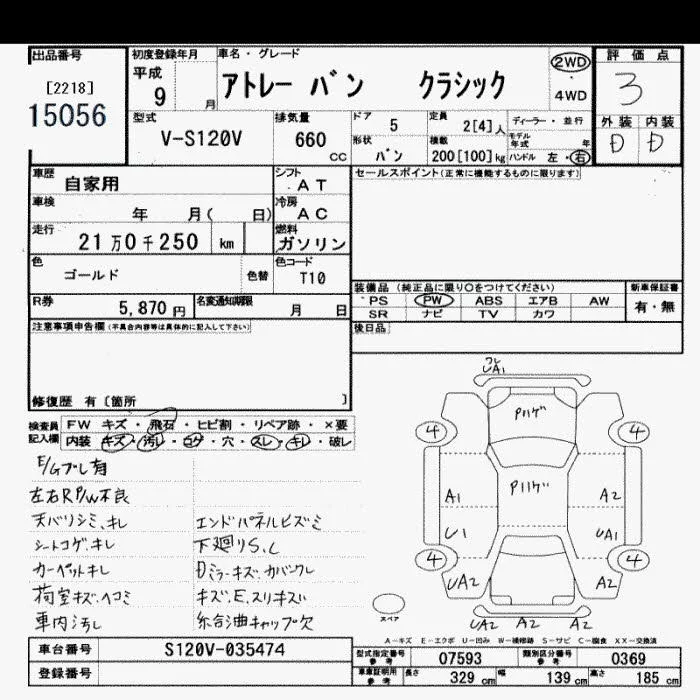 出品番号 初度登録年月 車名・グレード 評価点
[2218] 平成 9 月 アトレー バン クラシック 2WD・4WD 3
15056
型式 排気量 ドア 5 定員 2[4]人 ディーラー・並行 外装 内装
V-S120V 660 CC 形状 バン 積載 200[100]kg モデル年式 年 ハンドル 左・右 D D
車歴 自家用 シフト AT セールスポイント(正常に機能するものに限ります)
車検 年 月( 日) 冷房 AC
走行 21万0千250 km 燃料 ガソリン
色 ゴールド 色替 色コード T10
装備品(純正品に限り○をつけてください) 新車保証書
R券 5,870円 名変通知期限 月 日 PS PW ABS エアB AW 有・無
SR ナビ TV カワ
注意事項申告欄(不具合内容等は具体的に記入して下さい) 後日品
修復歴 有[箇所 ]
検査員記入欄 FW キズ・飛石・ヒビ割・リペア跡・×要
内装 キズ・汚レ・コゲ・穴・スレ・キレ・破レ
E/Gブレ有
左右RP/W不良
天バリシミ、キレ エンドパネルヒズミ
シートコゲ、キレ 下廻りS、C
カーペットキレ Dミラーキズ、カバーワレ
荷室キズ・ヘコミ キズ、E、スリキズ
車内汚し
UA1
Pハゲ
4 4
Pハゲ
A1 A2
U1 UA1
4 4
UA2 A2
UA2 A2 A2
スペア
A-キズ E-エクボ U-凹み W-補修跡 S-サビ C-腐食 XX-交換済
車台番号 S120V-035474 型式指定番号 参考 07593 類別区分番号 参考 0369
登録番号 車庫証明用 参考 長さ 329 cm 幅 139 cm 高さ 185 cm